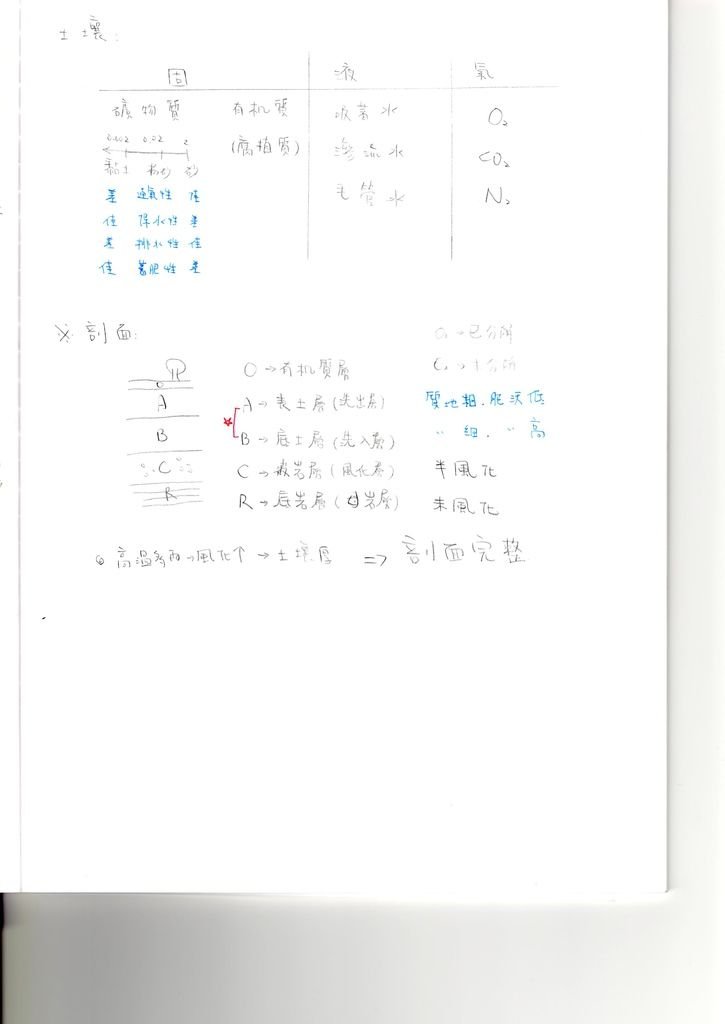 土壤:
固 液 氣
礦物質 有机質 吸著水 O₂
0.002 0.02 2 (腐植質) 滲流水 CO₂
黏土 砂 毛管水 N₂
差 通氣性 佳
佳 保水性 差
差 排水性 佳
佳 蓄肥性 差
※ 剖面: O₁→已分解
O O→有机質層 O₂→
A A→表土層(洗出層) 質地粗.肥沃低
B ☆ B→底土層(洗入層) 〃 細.〃 高
C C→ 岩層(風化層) 半風化
R R→底岩層(母岩層) 未風化
高溫多雨→風化↑→土壤厚 ⇒ 剖面完整